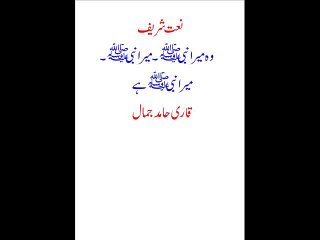 نعت شریف
وہ میرا نبی ﷺ ۔ میرا نبی ﷺ ۔
میرا نبی ﷺ ہے
قاری حامد جمال